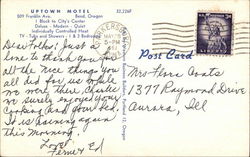 UPTOWN MOTEL
509 Franklin Ave. Bend, Oregon
1 Block to City's Center
Deluxe - Modern - Quiet
Individually Controlled Heat
TV - Tubs and Showers - 1 & 2 Bedrooms
Post Card
Dear Folks: Just a
line to thank you for
all the nice things you
did for us while
we were there. 
we surely enjoyed your
cooking and your
It is raining again
this morning!
Love
Mrs Flora Coats
1377 Raymond Drive
Aurora, Ill